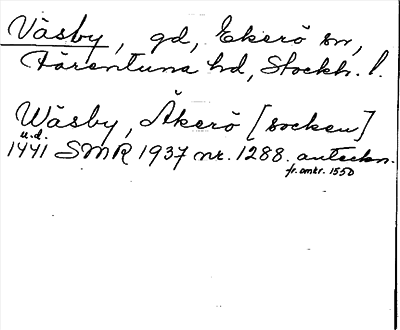 Väsby, gd, Ekerö sn,
Färentuna hd, Stockh. l.
Wäsby, Åkerö [socken]
u.d.
1441 SMR 1937 nr. 1288. anteckn.
fr. omkr. 1550